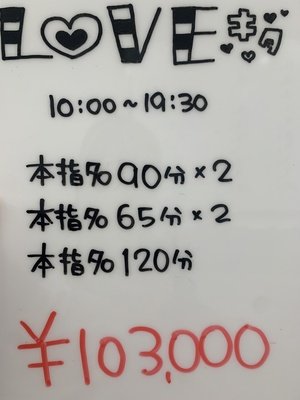 LOVE朝
10:00〜19:30
本指% 90分×2
本指% 65分×2
本指% 120分
¥103,000